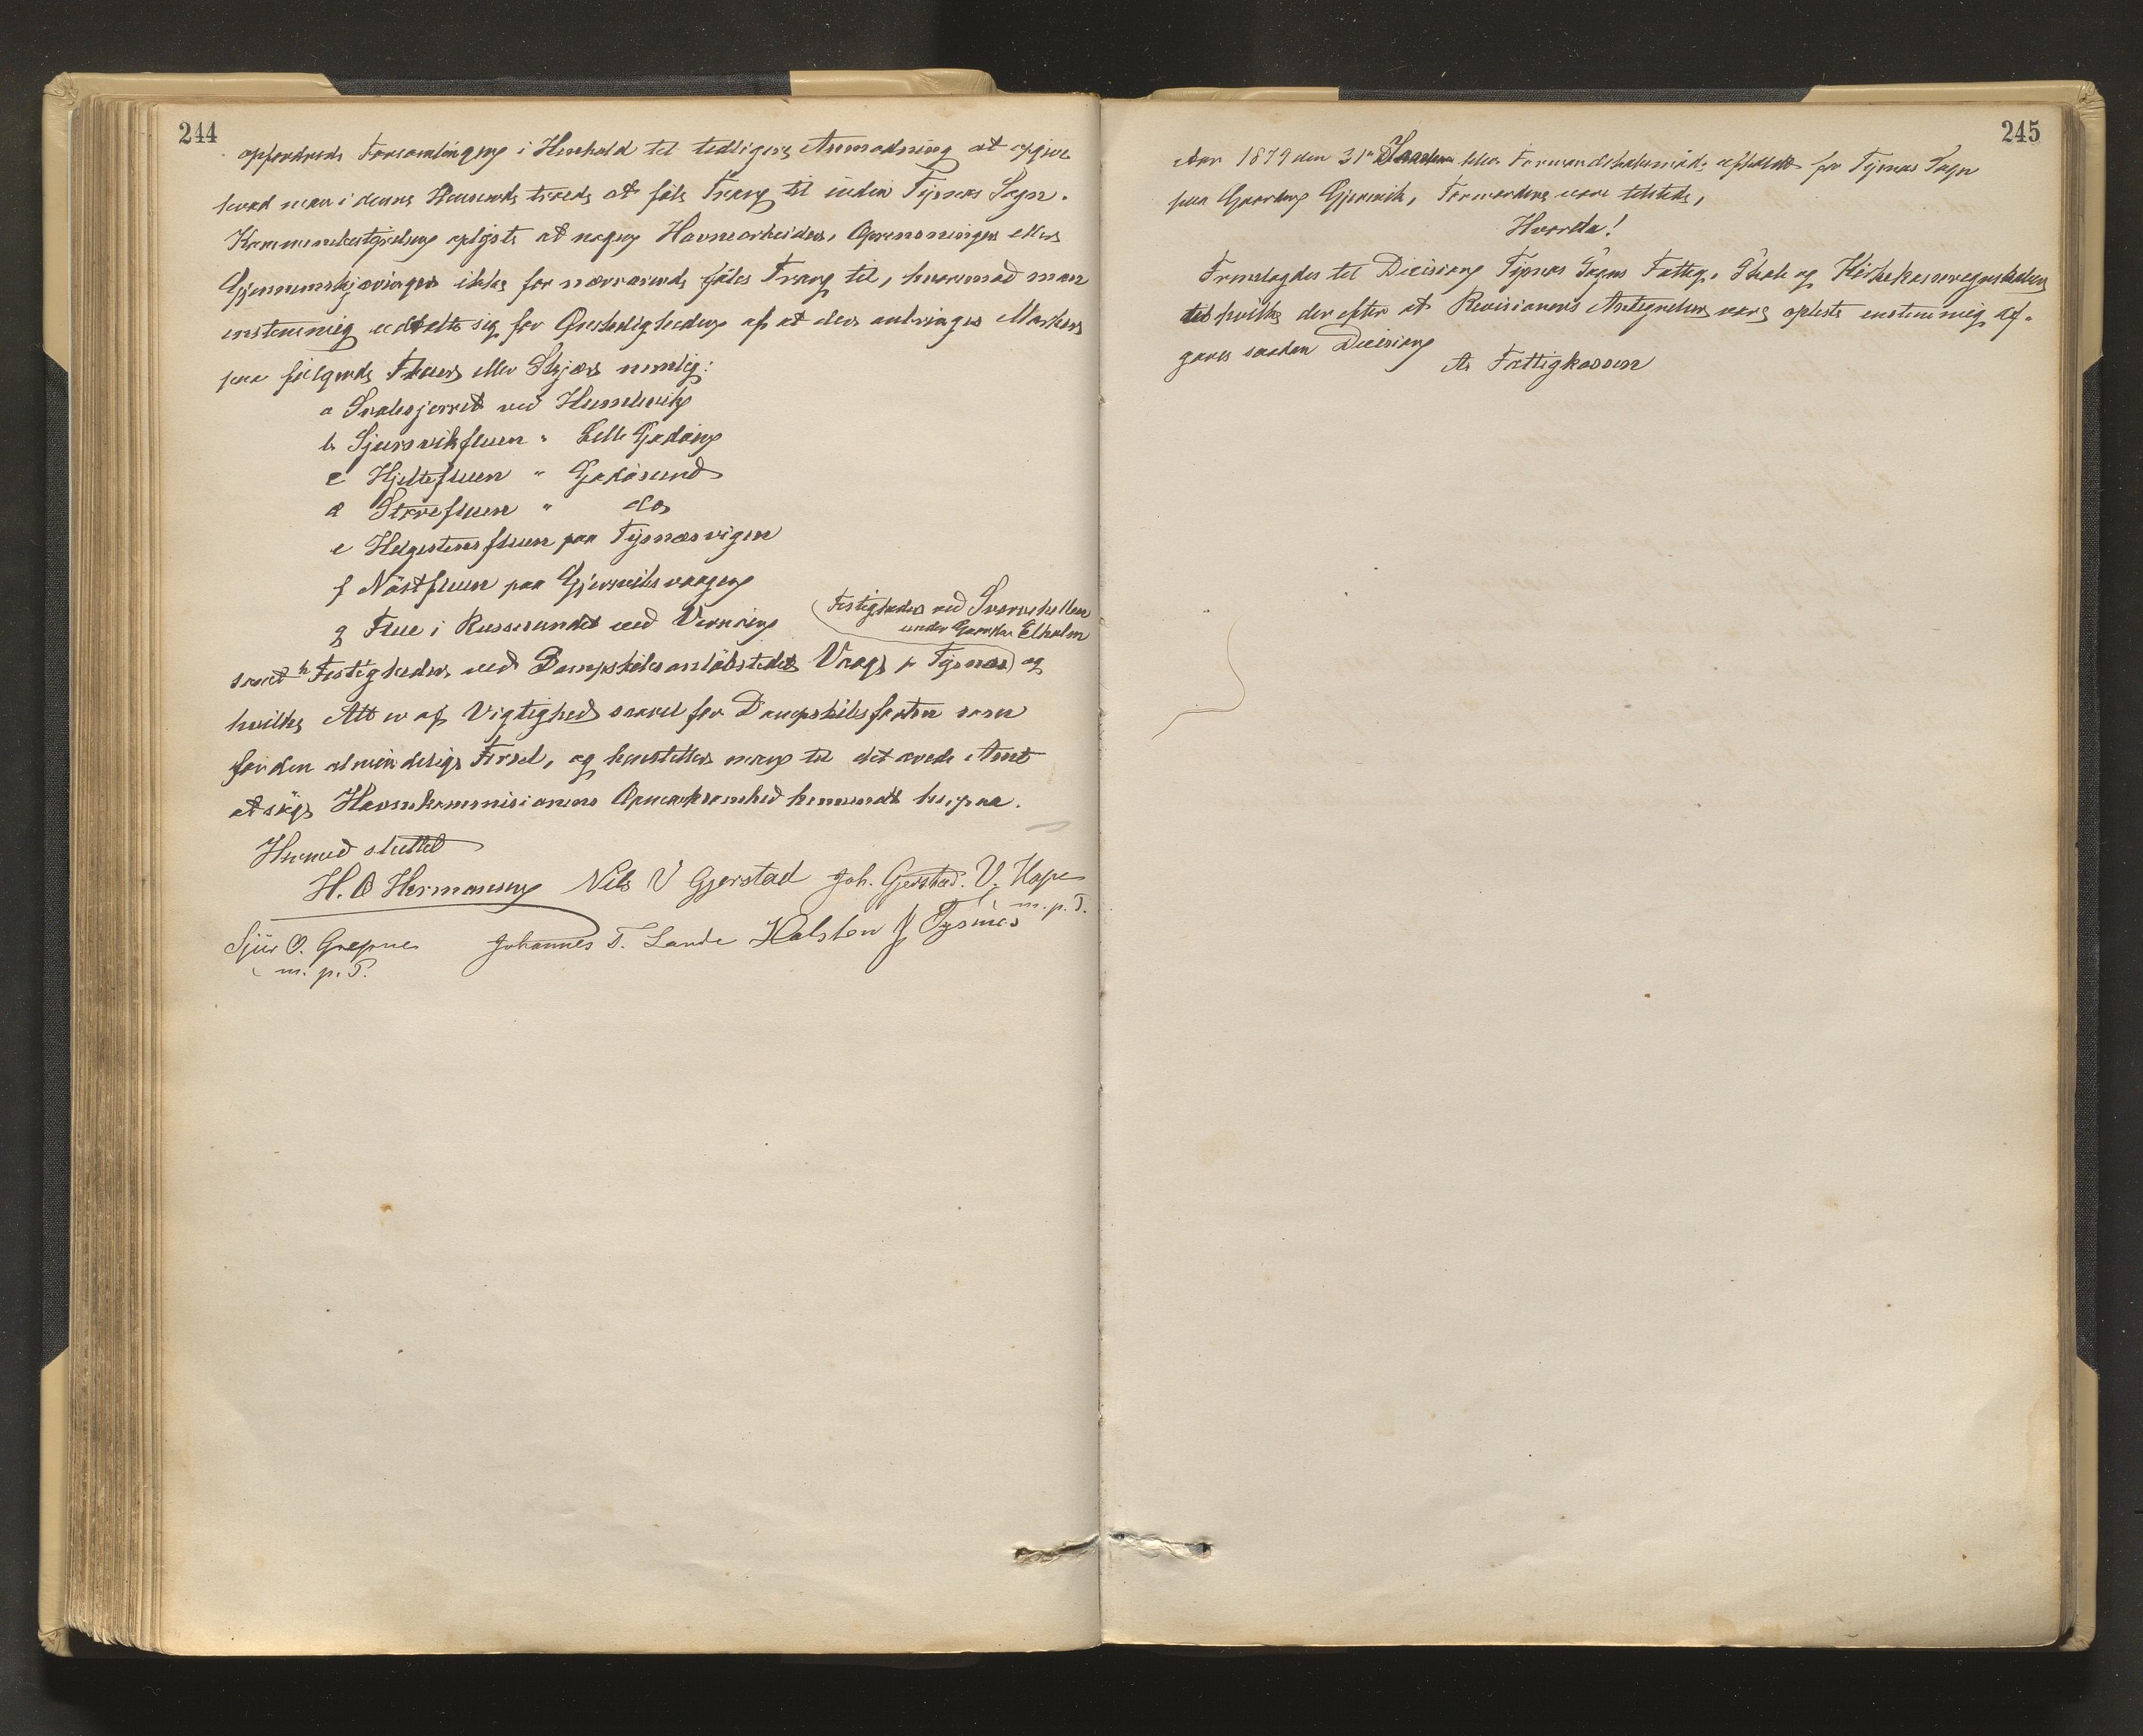 244
opfordrede Forsamlingen i Henhold til tidligere Anmodning at opgive
hvad man i denne Henseende troede at føle Trang til inden Tysnæs Sogn.
Kommunebestyrelsen oplyste at nogen Havnearbeider, Oprensninger eller
Gjennemskjæringer ikke for nærværende føles Trang til, hvorimod man
enstemmig udtalte sig for Ønskeligheden af at der anbringes Mærker
paa følgende Fluer eller Skjær nemlig:
a Svalesjerret ved Humlevik
b Sjursvikfluen " Lille Godøen
c Hjeltefluen " Godøsund
d Størefluen " do
e Helgestensfluen paa Tysnæsvigen
f Nöstfluen paa Gjersviksvaagen
g Flue i Russesundet ved Vernøen
(Festigheder ved Svarvehellen
under Gaarden Elholm
samt h Festigheder ved Dampskibsanløbstedet Vaage p Tysnæs) og
hvilke Alt er af Vigtighed saavel for Dampskibsfarten som
for den almindelige Færsel, og henstilles man til det ærede Amt
at søge Havnekommisionens Opmærksomhed henvendt herpaa.
Hermed sluttet
H. O Hermansen Nils V Gjerstad Joh. Gjerstad. V. Hope
m. p. P.
Sjur O. Grepne Johannes T. Lande Halsten J Tysnes
m. p. P.
245
Aar 1879 den 31te blev Formandskabsmøde afholdt for Tysnæs Sogn
paa Gaarden Gjersvik, Formændene vare tilstede,
Hvorda!
Fremlagdes til Dicision Tysnæs Sogns Fattig, Skole og Kirkekasseregnskaber
til hvilke der efter at Revisionens Antegnelser vare oplæste enstemmig af-
gaves saadan Dicision
A. Fattigkassen